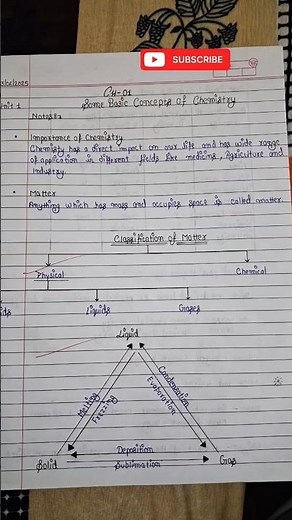 SUBSCRIBE
/2025
CH-01
Unit 1
Some Basic Concepts of Chemistry
Notes:-
• Importance of Chemistry
Chemisty has a direct impact on our life and has wide range
of application in different fields like medicine, Agriculture and
Industry.
• Matter
Anything which has mass and occupies space is called matter.
Classification of Matter
Physical
Chemical
ids
Liquids
Gases
Liquid
Melting
Frezzing
Condensation
Evaporation
Deposition
Solid
Gas
Sublimation